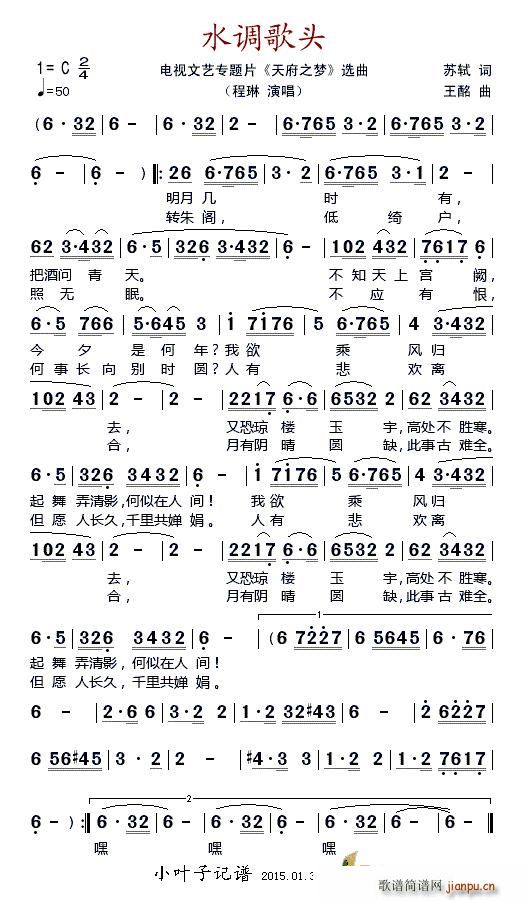 水调歌头
1= C 2/4 电视文艺专题片《天府之梦》选曲 苏轼 词
♩=50 （程琳 演唱） 王酩 曲
( 6 · 32 | 6 - | 6 · 32 | 6 - | 6·765 | 3 · 2 | 6·765 | 3·2 |
6 - | 6 - ) ‖: 26 6·765 | 3 · 2 | 6·765 3·1 | 2 - |
明月 几 时 有,
转朱 阁, 低 绮 户,
62 3·432 | 6·5 | 326 3·432 | 6 - | 102 432 | 7617 6 |
把酒问 青 天。 不 知 天 上 宫 阙,
照 无 眠。 不 应 有 恨,
6·5 766 | 5·645 3 | 1 7176 | 5 6·765 | 4 3·432 |
今 夕 是 何 年? 我 欲 乘 风 归
何 事 长 向 别 时 圆? 人 有 悲 欢 离
102 43 | 2 - | 2 - | 2217 6·6 | 6532 2 | 62 3432 |
去, 又恐琼 楼 玉 宇, 高处 不 胜寒。
合, 月有阴 晴 圆 缺, 此事 古 难全。
6·5 | 326 3432 | 6 - | 1 7176 | 5 6·765 | 4 3·432 |
起 舞 弄清影, 何似在人 间! 我 欲 乘 风 归
但 愿 人长久, 千里共婵 娟。 人 有 悲 欢 离
102 43 | 2 - | 2 - | 2217 6·6 | 6532 2 | 62 3432 |
去, 又恐琼 楼 玉 宇, 高处 不 胜寒。
合, 月有阴 晴 圆 缺, 此事 古 难全。
1
6·5 | 326 3432 | 6 - | ( 6 7227 | 6 5645 | 6 6 |
起 舞 弄清影, 何似在人 间!
但 愿 人长久, 千里共婵 娟。
6 - | 2·6 | 3·2 | 2·1 | 32#43 | 2 - | 2 6227 |
6 56#45 | 3 · 2 | 2 - | #4·3 3 | 1·2 | 1·2 7617 |
2
6 - ) :‖ 6·32 | 6 - | 6·32 | 6·32 | 6 - | 6 - ‖
嘿 嘿 嘿
小叶子记谱 2015.01.3
歌谱简谱网
jianpu.cn